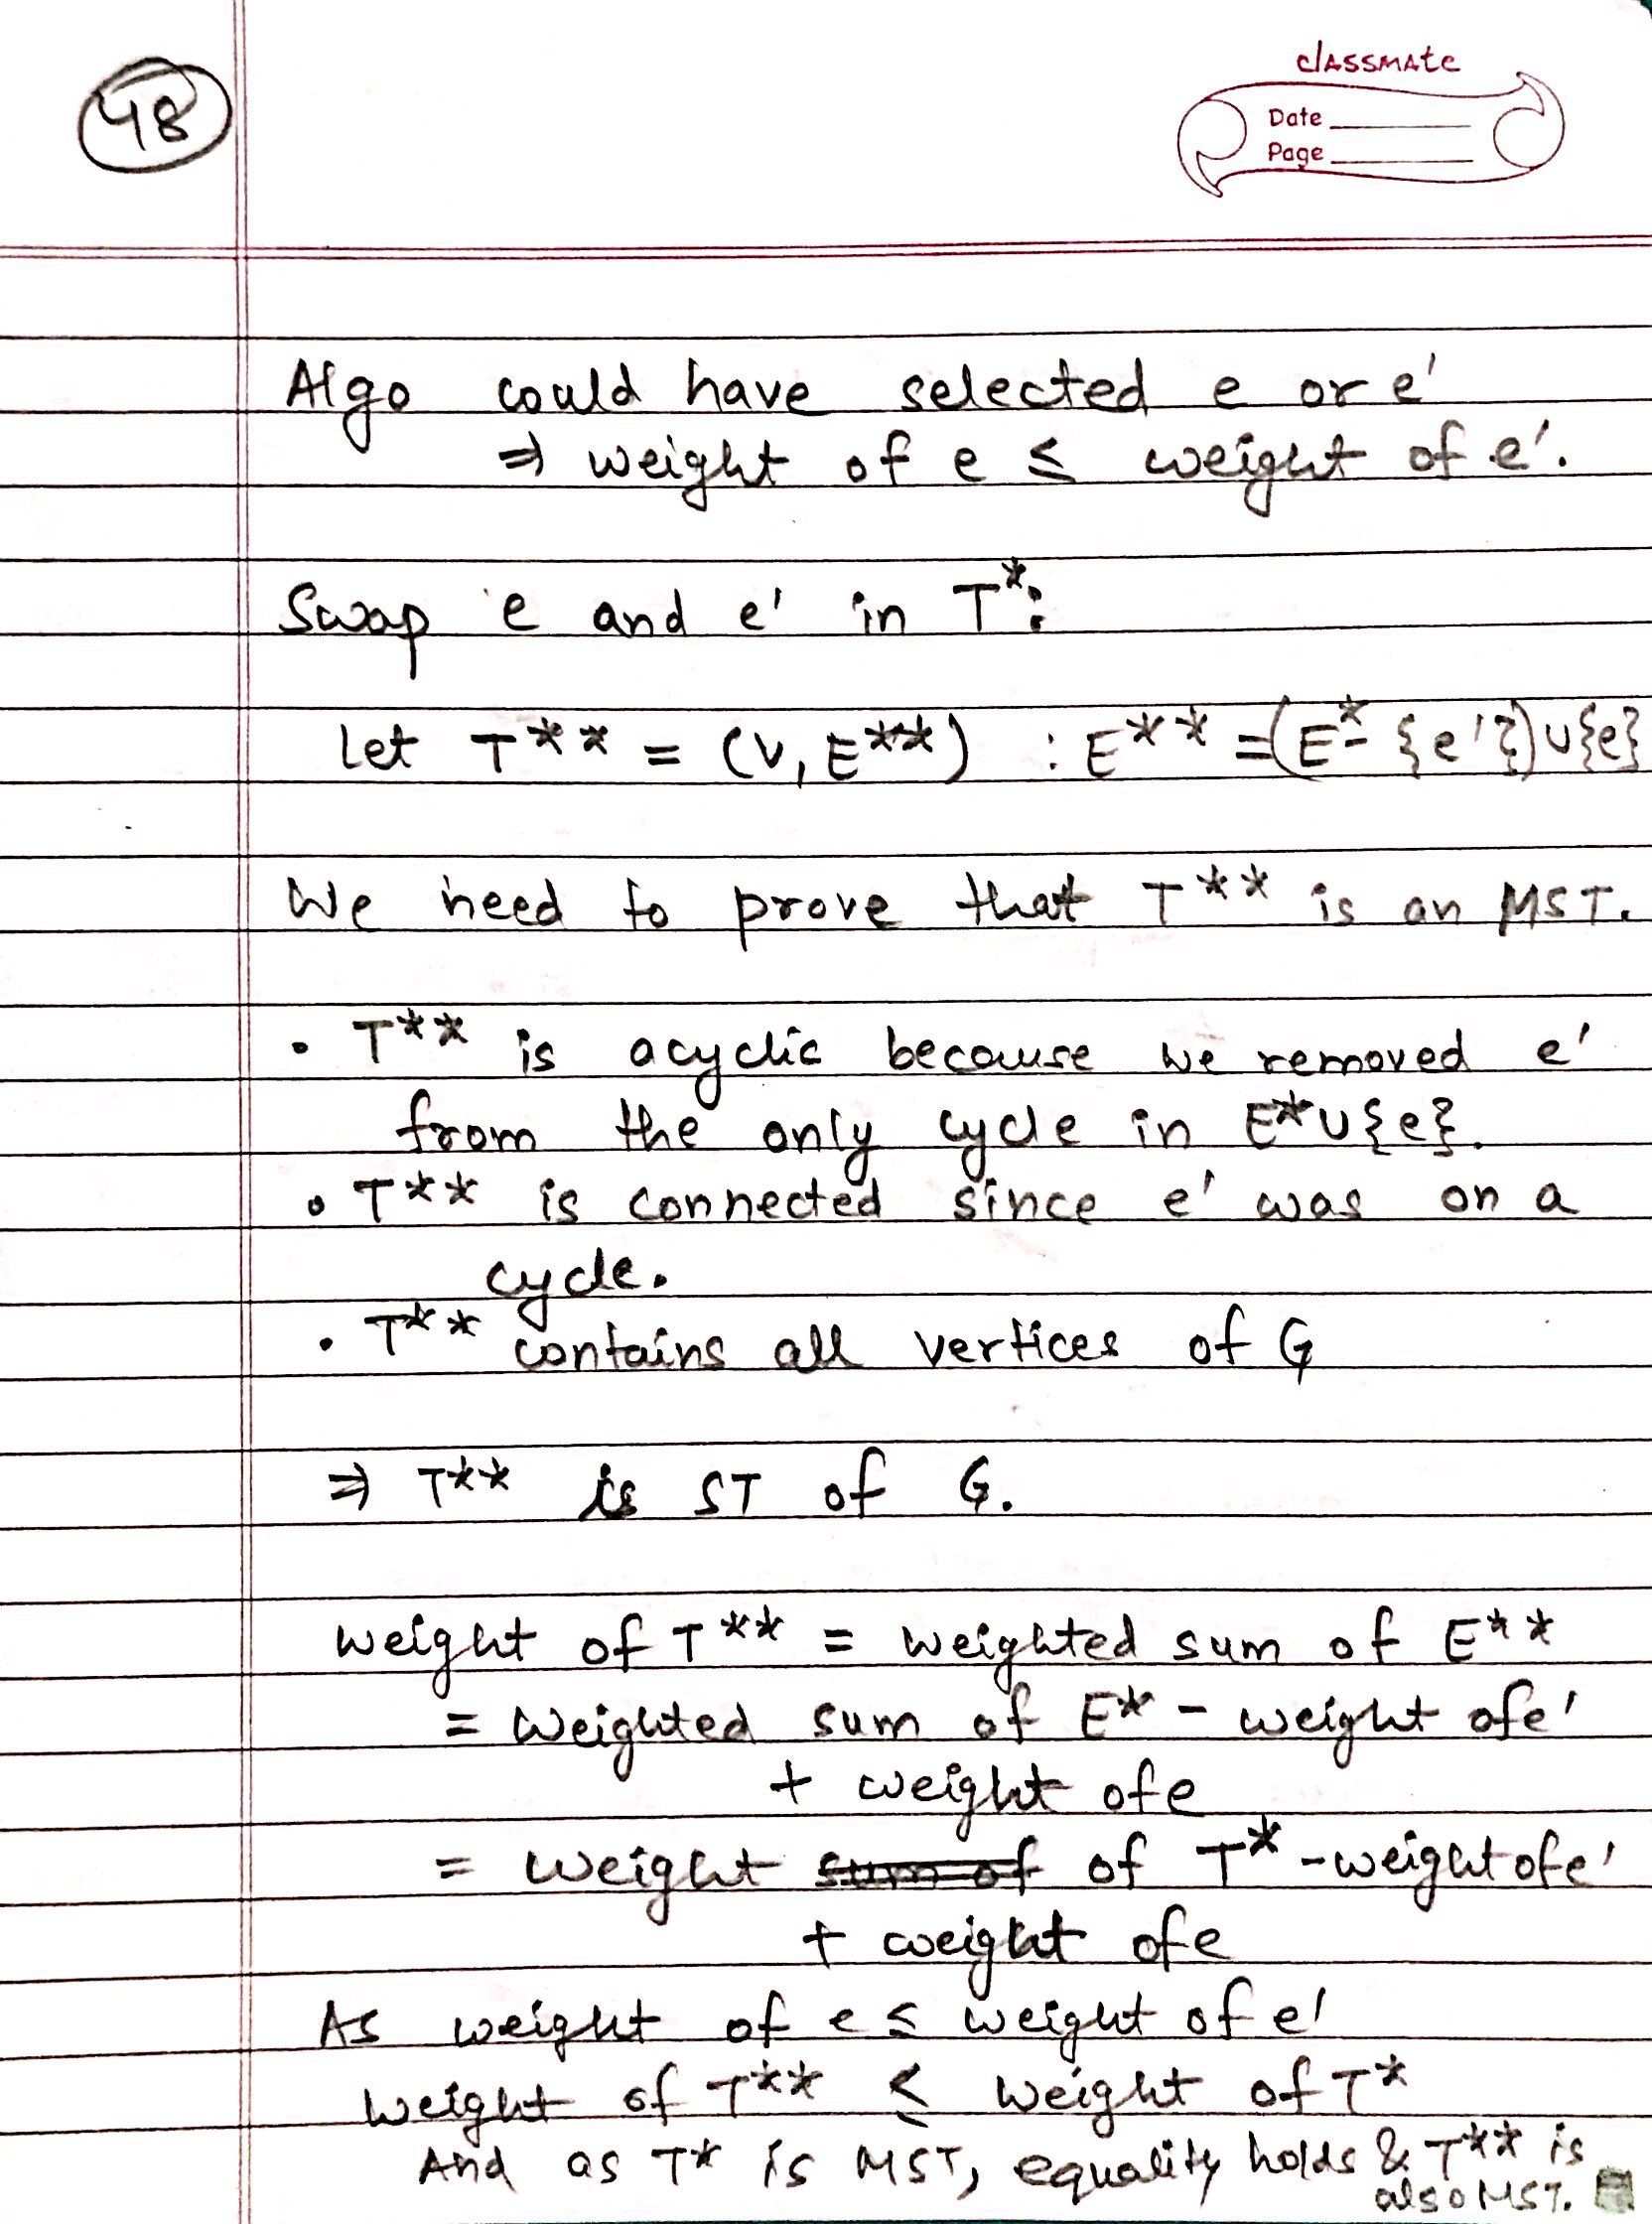 48
classmate
Date
Page
Algo could have selected e or e'
⇒ weight of e ≤ weight of e'.
Swap e and e' in T*:
Let T** = (V, E**) : E** = (E* - {e'}) ∪ {e}
We need to prove that T** is an MST.
• T** is acyclic because we removed e'
from the only cycle in E* ∪ {e}.
• T** is connected since e' was on a
cycle.
• T** contains all vertices of G
⇒ T** is ST of G.
weight of T** = weighted sum of E**
= Weighted sum of E* - weight of e'
+ weight of e
= weight sum of of T* - weight of e'
+ weight of e
As weight of e ≤ weight of e'
weight of T** ≤ weight of T*
And as T* is MST, equality holds & T** is
also MST.